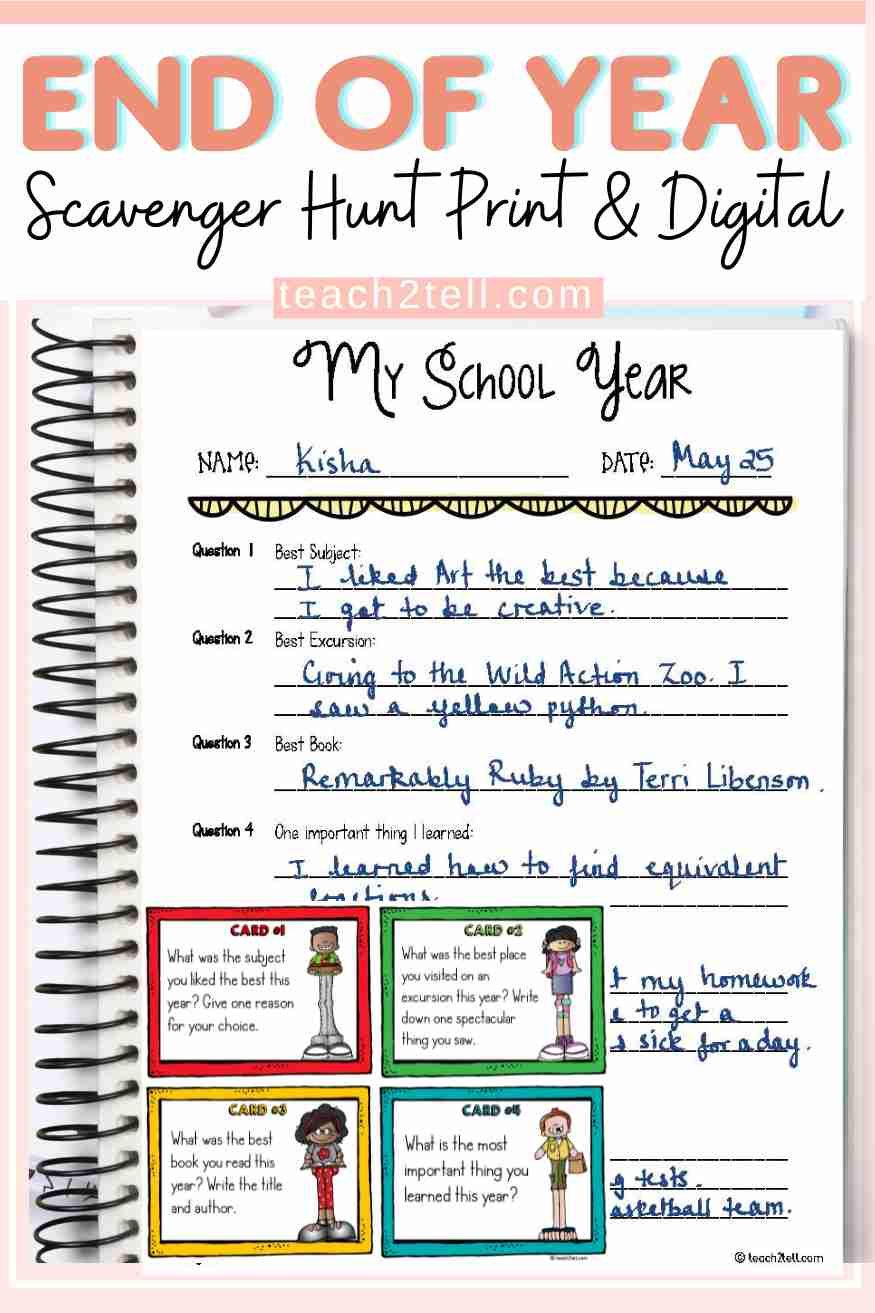 END OF YEAR
Scavenger Hunt Print & Digital
teach2tell.com
My School Year
Name: Kisha Date: May 25
Question 1 Best Subject:
I liked Art the best because
I got to be creative.
Question 2 Best Excursion:
Going to the Wild Action Zoo. I
saw a yellow python.
Question 3 Best Book:
Remarkably Ruby by Terri Libenson.
Question 4 One important thing I learned:
I learned how to find equivalent
fractions.
my homework
to get a
sick for a day.
tests.
team.
CARD #1
What was the subject
you liked the best this
year? Give one reason
for your choice.
CARD #2
What was the best place
you visited on an
excursion this year? Write
down one spectacular
thing you saw.
CARD #3
What was the best
book you read this
year? Write the title
and author.
CARD #4
What is the most
important thing you
learned this year?
© teach2tell.com